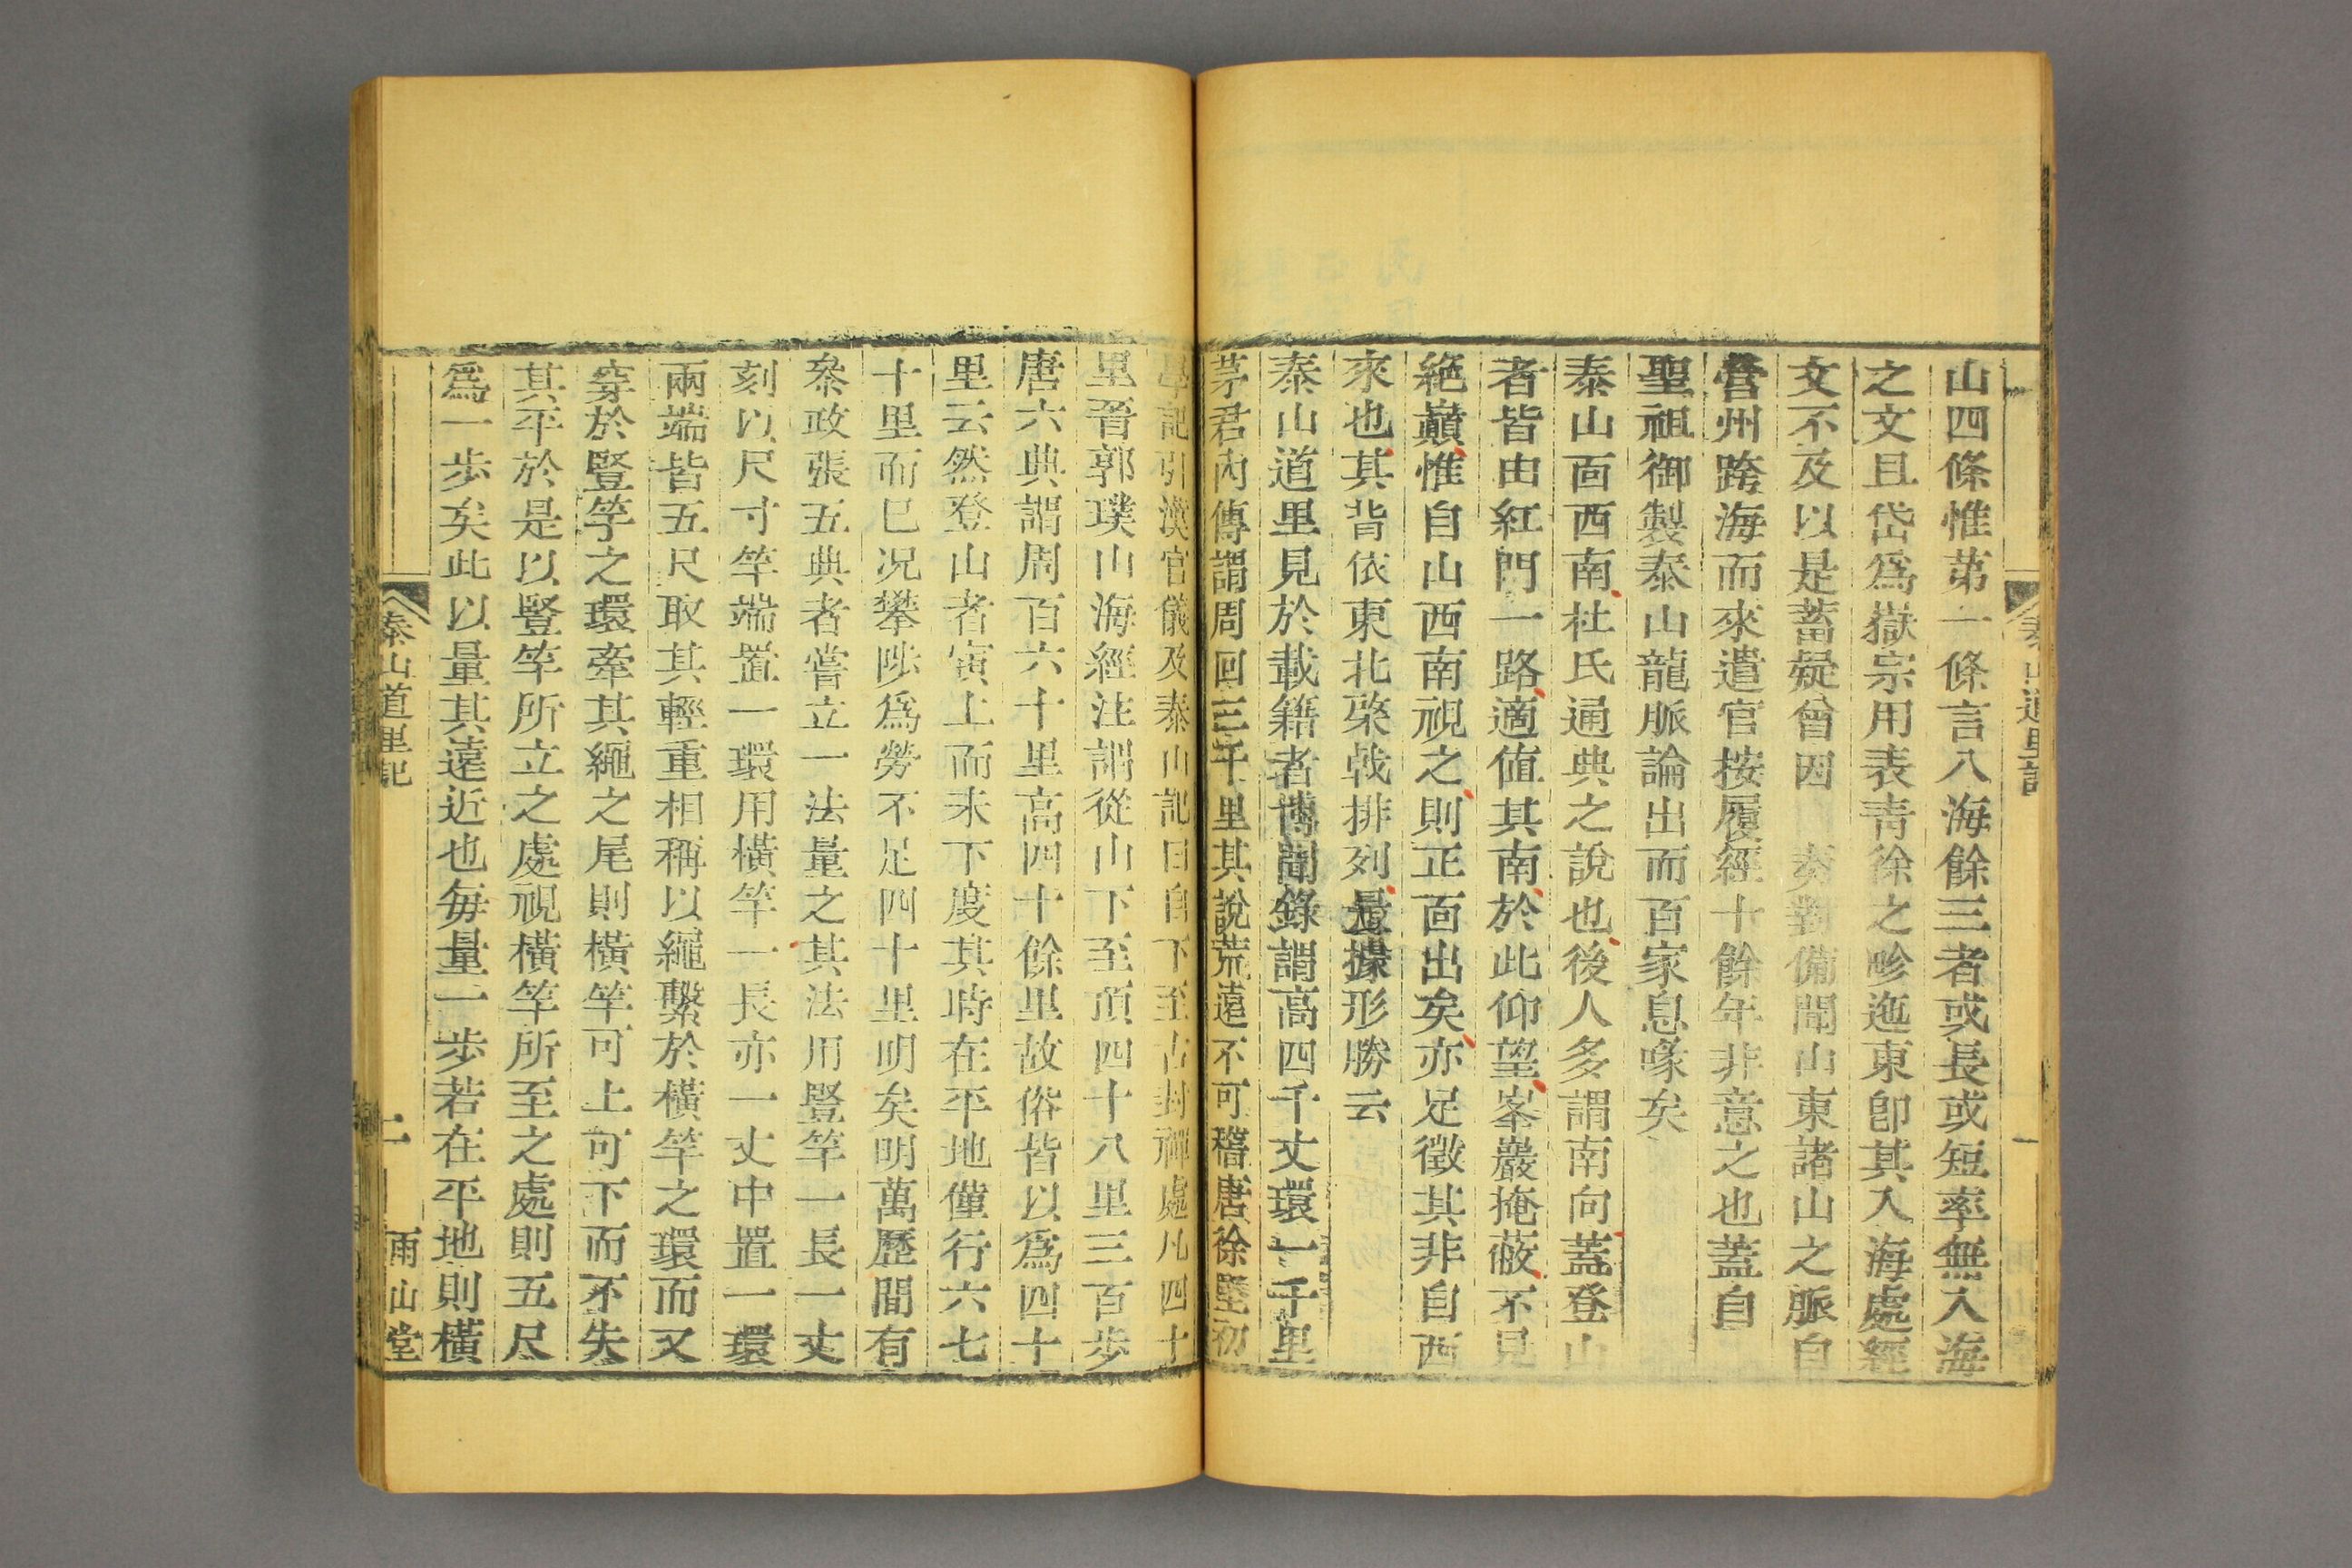 山四條惟苐一條言入海餘三者或長或短率無入海
之文且岱爲嶽宗用表靑徐之畛迤東卽其入海處經
文不及以是蓄疑曾因
奏對備聞山東諸山之脈自
營州跨海而來遣官按履經十餘年非意之也蓋自
聖祖御製泰山龍脈論出而百家息喙矣
泰山面西南杜氏通典之說也後人多謂南向蓋登山
者皆由紅門一路適値其南於此仰望峯巖掩蔽不見
絶巔惟自山西南視之則正面出矣亦足徵其非自西
來也其背依東北棨戟排列最據形勝云
泰山道里見於載籍者博聞錄謂高四千丈環一千里
茅君內傳謂周回三千里其說荒遠不可稽唐徐堅初
學記引漢官儀及泰山記曰自下至古封禪處凡四十
里晉郭璞山海經注謂從山下至頂四十八里三百步
唐六典謂周百六十里高四十餘里故俗皆以爲四十
里云然登山者寅上而未下度其時在平地僅行六七
十里而巳况攀陟爲勞不足四十里明矣明萬歷間有
叅政張五典者嘗立一法量之其法用豎竿一長一丈
刻以尺寸竿端置一環用橫竿一長亦一丈中置一環
兩端皆五尺取其輕重相稱以繩繫於橫竿之環而又
穿於豎竿之環牽其繩之尾則橫竿可上可下而不失
其平於是以豎竿所立之處視橫竿所至之處則五尺
爲一步矣此以量其遠近也每量一步若在平地則橫
泰山道里記
二
雨山堂